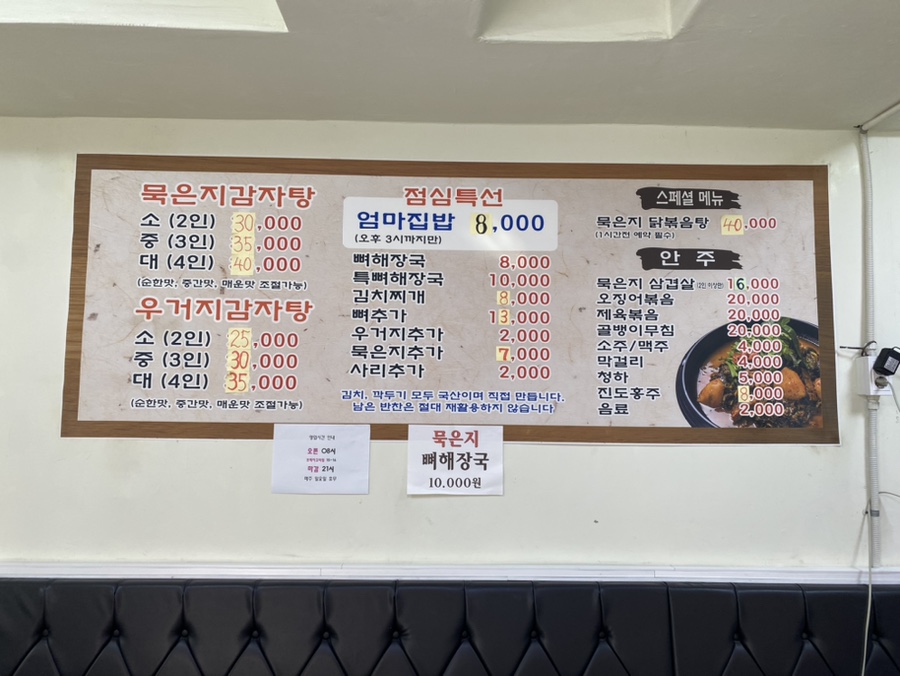 묵은지감자탕
소 (2인) 30,000
중 (3인) 35,000
대 (4인) 40,000
(순한맛, 중간맛, 매운맛 조절가능)
우거지감자탕
소 (2인) 25,000
중 (3인) 30,000
대 (4인) 35,000
(순한맛, 중간맛, 매운맛 조절가능)
점심특선
엄마집밥 8,000
(오후 3시까지만)
뼈해장국 8,000
특뼈해장국 10,000
김치찌개 8,000
뼈추가 13,000
우거지추가 2,000
묵은지추가 7,000
사리추가 2,000
김치, 깍두기 모두 국산이며 직접 만듭니다.
남은 반찬은 절대 재활용하지 않습니다.
스페셜 메뉴
묵은지 닭볶음탕 40,000
(1시간전 예약 필수)
안 주
묵은지 삼겹살 (2인 이상한) 16,000
오징어볶음 20,000
제육볶음 20,000
골뱅이무침 20,000
소주/맥주 4,000
막걸리 4,000
청하 5,000
진도홍주 8,000
음료 2,000
영업시간 안내
오픈 08시
마감 21시
매주 일요일 휴무
묵은지
뼈해장국
10,000원